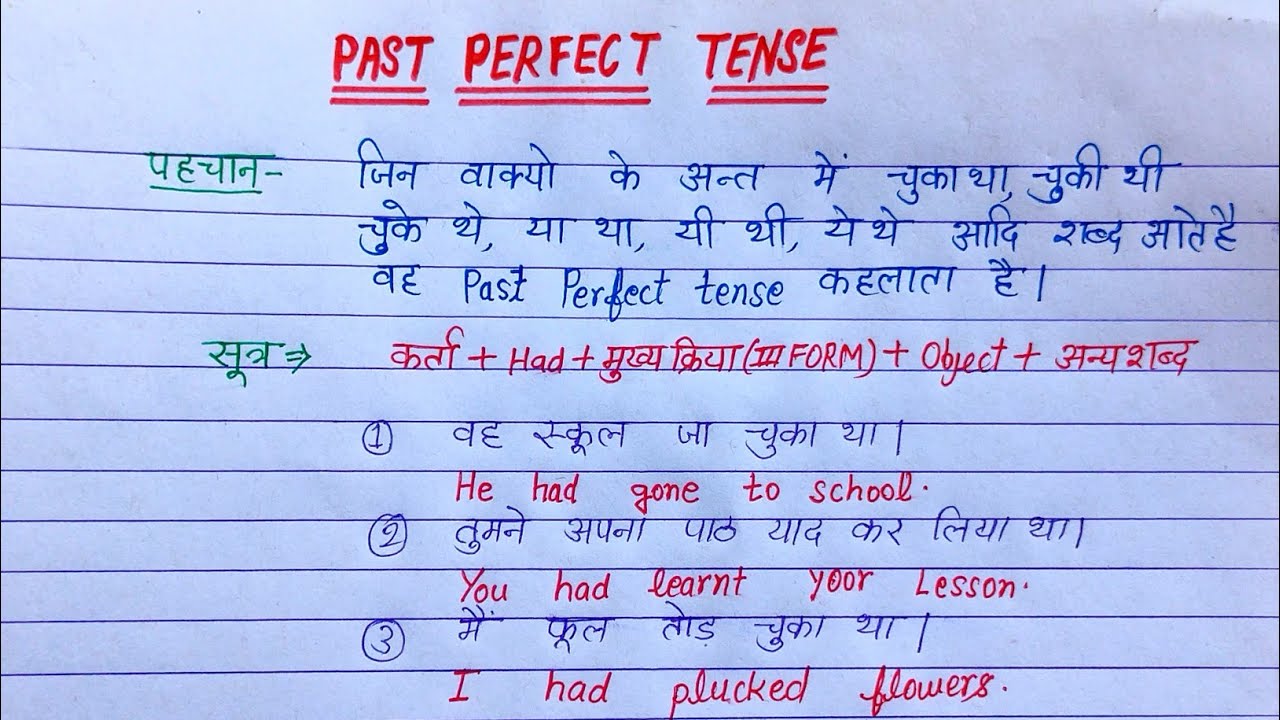 PAST PERFECT TENSE
पहचान- जिन वाक्यो के अन्त में चुका था, चुकी थी
चुके थे, या था, यी थी, ये थे आदि शब्द आते है
वह Past Perfect tense कहलाता है।
सूत्र ⇒ कर्ता + Had + मुख्य क्रिया (III FORM) + Object + अन्य शब्द
① वह स्कूल जा चुका था।
He had gone to school.
② तुमने अपना पाठ याद कर लिया था।
You had learnt yoor Lesson.
③ मैं फूल तोड़ चुका था।
I had plucked flowers.